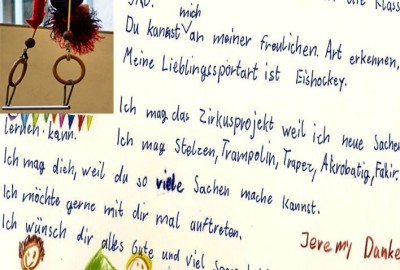 die Klass
mich
Du kannst an meiner freulichen. Art erkennen,
Meine Lieblingssportart ist Eishockey.
Ich mag das Zirkusprojekt weil ich neue Sachen
lernen kann. Ich mag Stelzen, Trampolin, Trapez, Akrobatig, Fakir.
Ich mag dich, weil du so viele Sachen mache kannst.
Ich möchte gerne mit dir mal auftreten.
Ich wünsch dir alles Gute und viel
Jeremy Danke